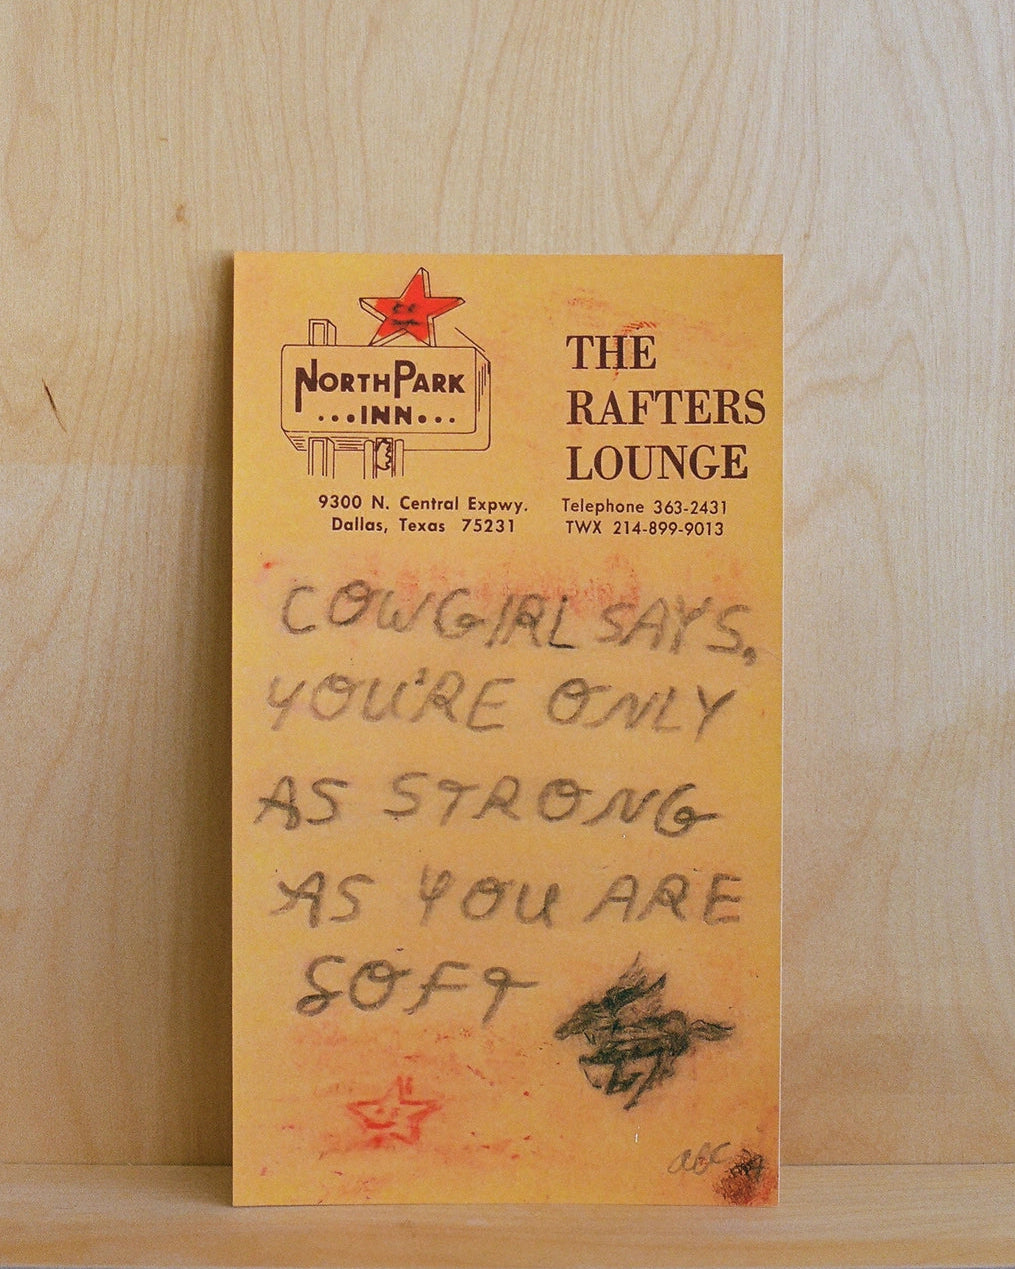 NORTHPARK
...INN...
THE
RAFTERS
LOUNGE
9300 N. Central Expwy.
Dallas, Texas 75231
Telephone 363-2431
TWX 214-899-9013
COWGIRL SAYS,
YOU'RE ONLY
AS STRONG
AS YOU ARE
SOFT
abc